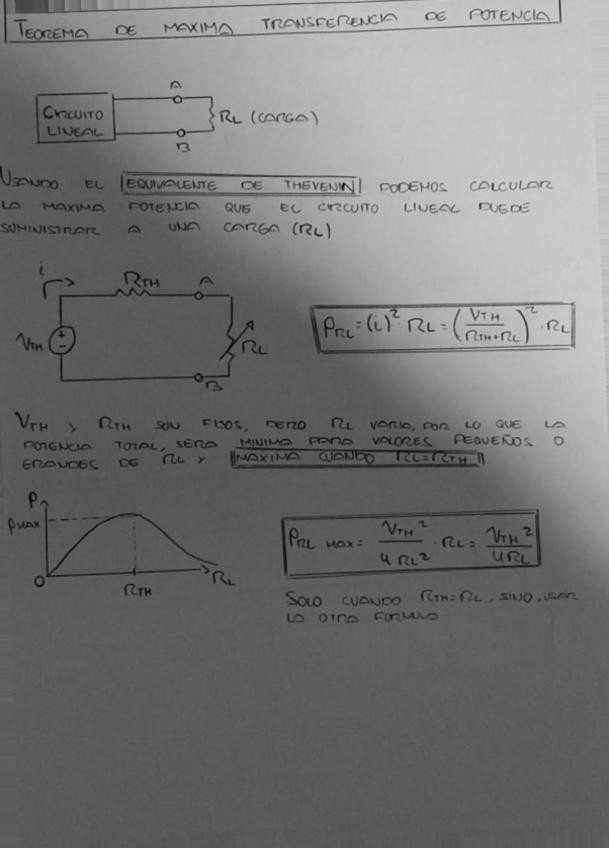 TEOREMA DE MAXIMA TRANSFERENCIA DE POTENCIA
A
CIRCUITO
LINEAL
RL (CARGA)
B
USANDO EL EQUIVALENTE DE THEVENIN PODEMOS CALCULAR
LA MAXIMA POTENCIA QUE EL CIRCUITO LINEAL PUEDE
SUMINISTRAR A UNA CARGA (RL)
i
RTH
A
VTH
+
-
RL
B
PRL = (i)² · RL = (VTH / RTH+RL)² · RL
VTH Y RTH SON FIJOS, PERO RL VARIA, POR LO QUE LA
POTENCIA TOTAL, SERA MINIMA PARA VALORES PEQUEÑOS O
GRANDES DE RL Y MAXIMA CUANDO RL=RTH
P
PMAX
O
RTH
RL
PRL MAX = VTH² / 4 RL² · RL = VTH² / 4RL
SOLO CUANDO RTH=RL, SINO, USAR
LA OTRA FORMULA